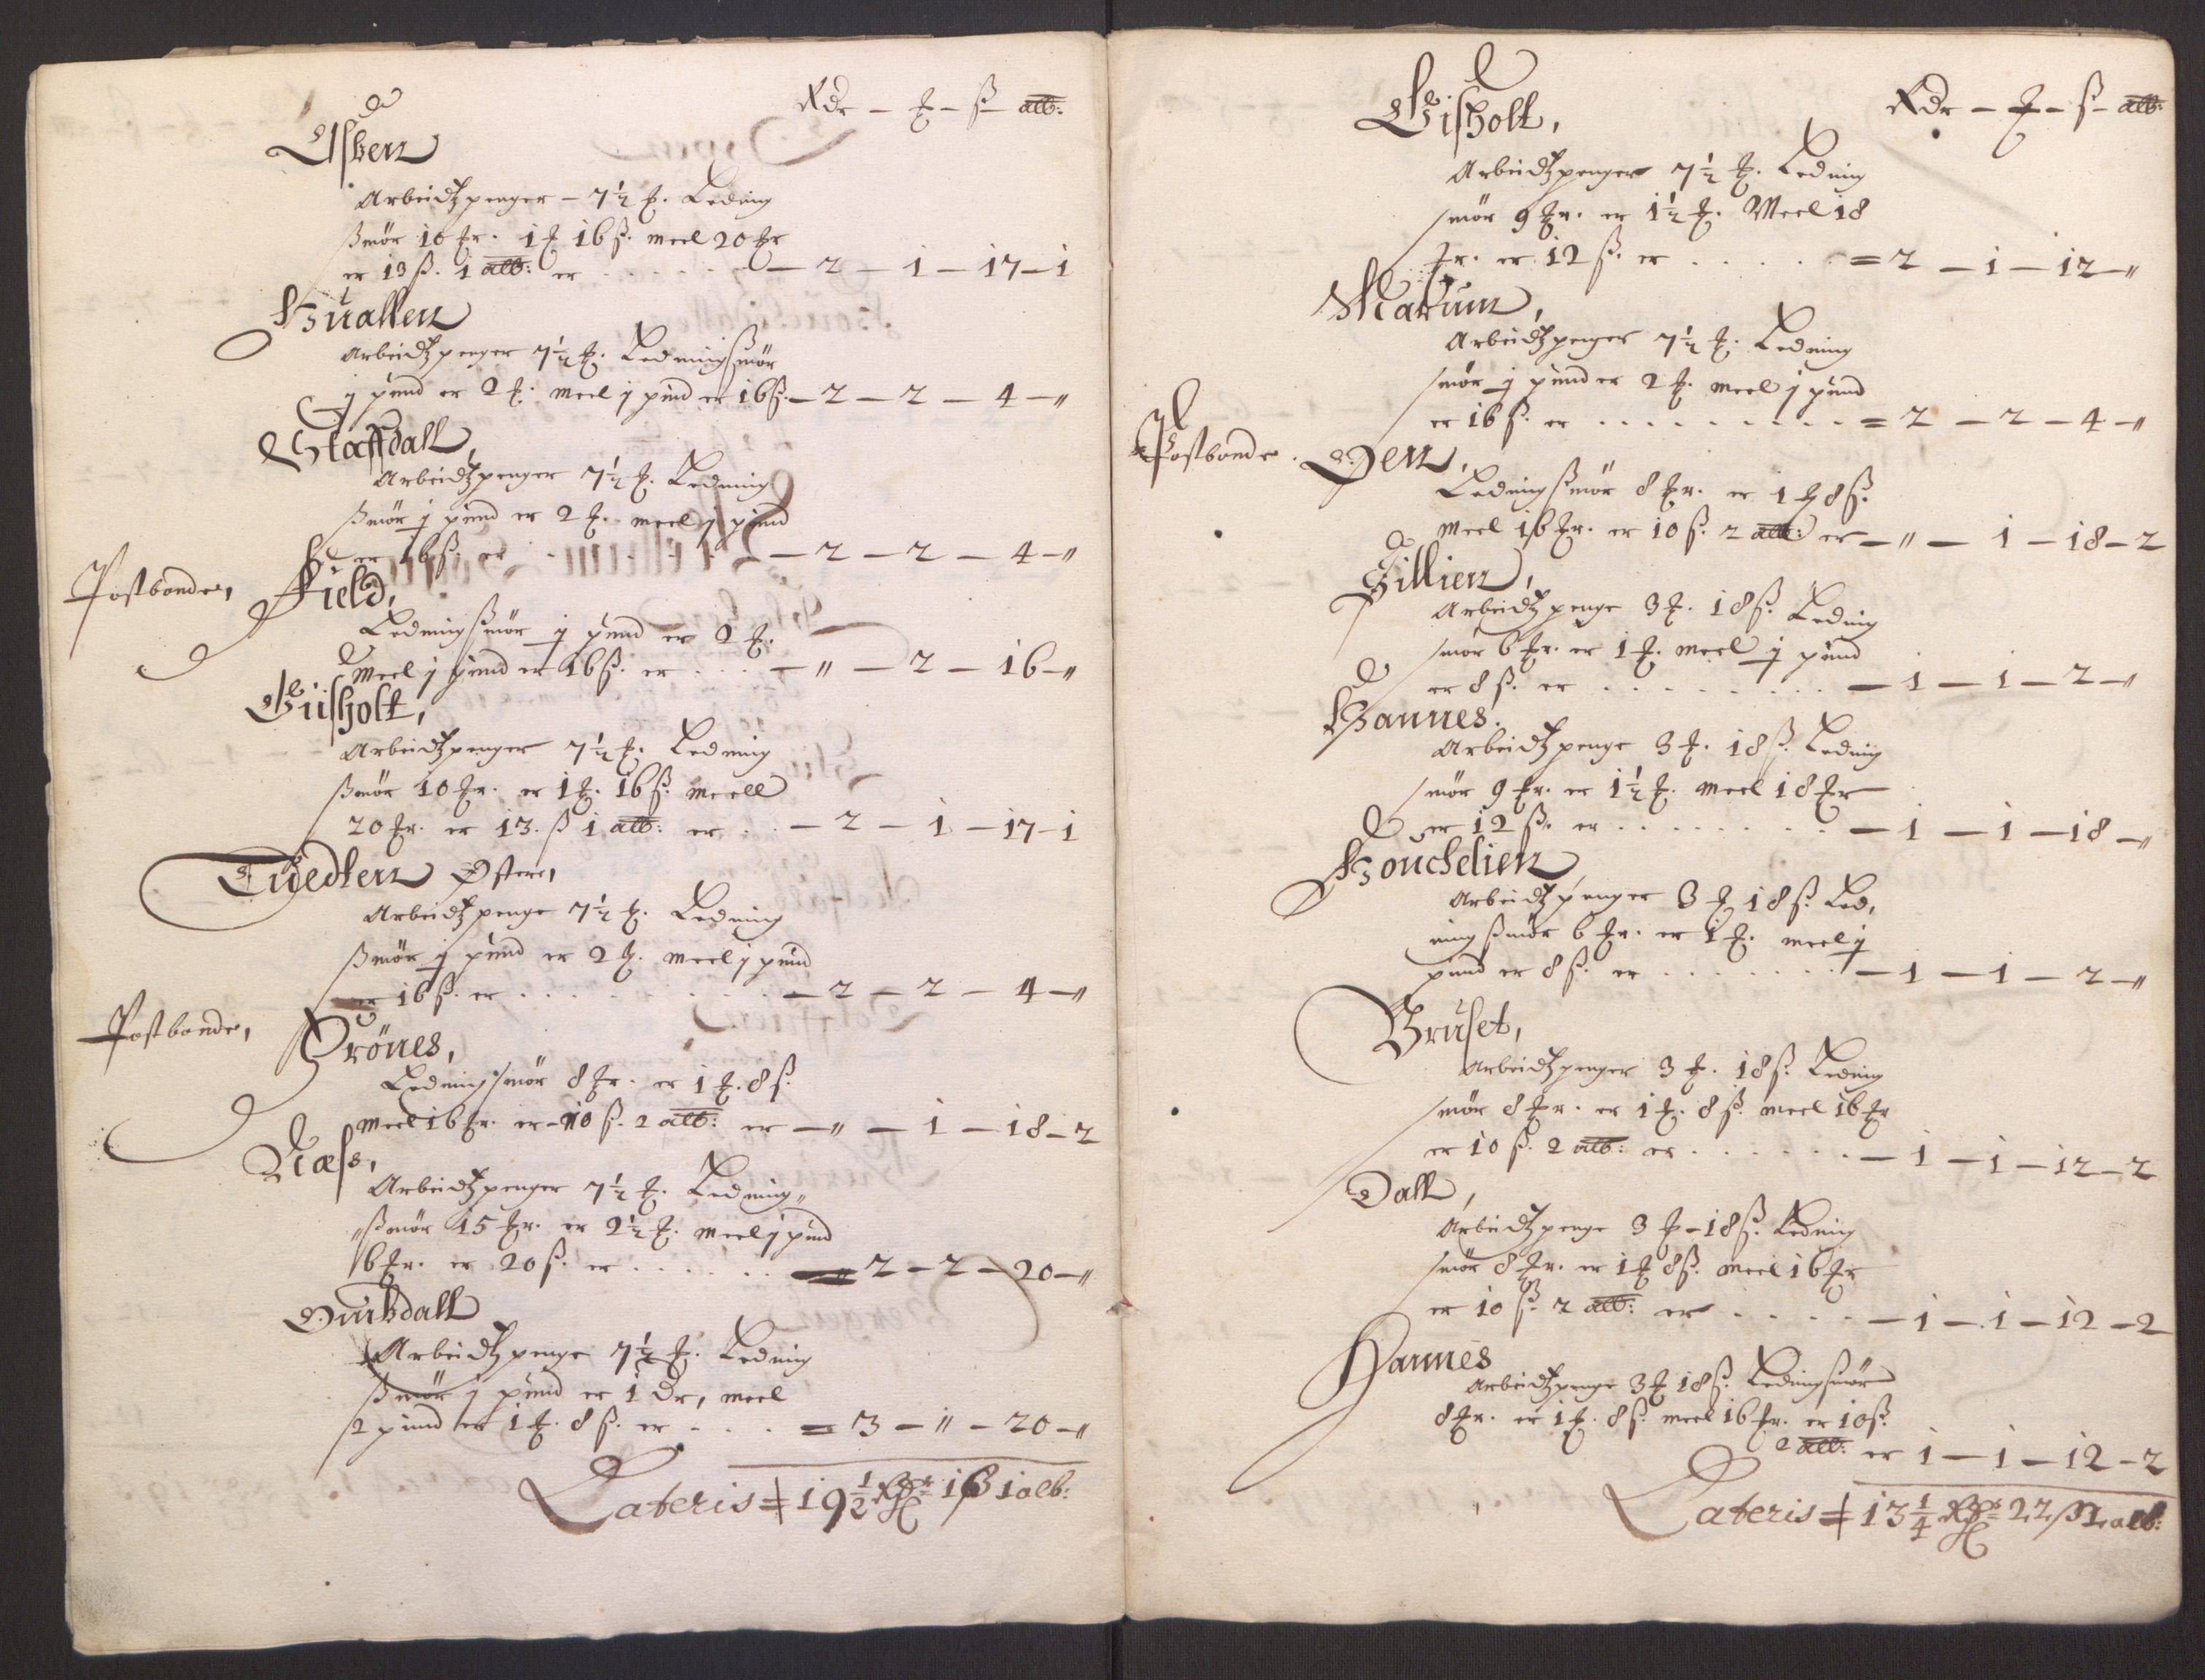 Rdr – ƒ – ß – alb:
Asben
Arbeidtzpenger – 7½ ƒ. Leding
ßmör 10 ℔r. 1 ƒ 16 ß. meel 20 ℔r
er 13 ß. 1 alb: er . . . . . – 2 – 1 – 17 – 1
Huallen
Arbeidtzpenger 7½ ƒ. Ledningßmör
j pund er 2 ƒ. meel j pund er 16 ß. – 2 – 2 – 4 – "
Staffdall,
Arbeidtzpenger 7½ ƒ. Ledning
ßmör j pund er 2 ƒ. meel j pund
er 16 ß. er . . . . . – 2 – 2 – 4 – "
Postbonde, Field,
Ledningßmör j pund er 2 ƒ.
Meel j pund er 16 ß. er . . . – " – 2 – 16 – "
Giisholt,
Arbeidtzpenger 7½ ƒ. Ledning
ßmör 10 ℔r. er 1 ƒ. 16 ß. meell
20 ℔r. er 13. ß 1 alb: er . . – 2 – 1 – 17 – 1
Tuedten Østere,
Arbeidtzpenge 7½ ƒ. Ledning
ßmör j pund er 2 ƒ. meel j pund
er 16 ß. er . . . . . – 2 – 2 – 4 – "
Postbonde, Prönes,
Ledningsmör 8 ℔r. er 1 ƒ. 8 ß.
Meel 16 ℔r. er 10 ß. 2 alb: er – " – 1 – 18 – 2
Næss,
Arbeidtzpenger 7½ ƒ. Ledning"
"ßmör 15 ℔r. er 2½ ƒ. meel j pund
6 ℔r. er 20 ß. er . . . . . 2 – 2 – 20 – "
Arbeidtzpenge 7½ ƒ. Ledning
ßmör j pund er 1 Dr, meel
2 pund er 1 ƒ. 8 ß. er . . . = 3 – " – 20 – "
Lateris = 19½ Rdr 1 ß 1 alb:
Rdr – ƒ – ß – alb:
Gisholt,
Arbeidtzpenger 7½ ƒ. Ledning
smör 9 ℔r. er 1½ ƒ. Meel 18
℔r. er 12 ß. er . . . . . = 2 – 1 – 12 – "
Markum,
Arbeidtzpenger 7½ ƒ. Ledning
smör j pund er 2 ƒ. meel j pund
er 16 ß. er . . . . . = 2 – 2 – 4 – "
Postbonde. Øen,
Ledningßmör 8 ℔r. er 1 ƒ 8 ß.
Meel 16 ℔r. er 10 ß. 2 alb: er – " – 1 – 18 – 2
Gillien,
Arbeidtzpenge 3 ƒ. 18 ß. Leding
smör 6 ℔r. er 1 ƒ. meel ½ pund
er 8 ß. er . . . . . – 1 – 1 – 2 – "
Hannes.
Arbeidtzpenge 3 ƒ. 18 ß. Ledning
smör 9 ℔r. er 1½ ƒ. meel 18 ℔r
er 12 ß. er . . . . . – 1 – 1 – 18 – "
Houchelien
Arbeidtzpenger 3 ƒ 18 ß. Led,
ningßmör 6 ℔r. er 1 ƒ. meel ½
pund er 8 ß. er . . . . . – 1 – 1 – 2 – "
Bruset,
Arbeidtzpenger 3 ƒ. 18 ß. Leding
smör 8 ℔r. er 1 ƒ. 8 ß. meel 16 ℔r
er 10 ß. 2 alb: er . . . . . – 1 – 1 – 12 – 2
Dall,
Arbeidtzpenge 3 ƒ – 18 ß. Ledning
smör 8 ℔r. er 1 ƒ 8 ß. meel 16 ℔r
er 10 ß. 2 alb: er . . . . – 1 – 1 – 12 – 2
Hannes
Arbeidtzpenge 3 ƒ 18 ß. Ledingsmör
8 ℔r. er 1 ƒ. 8 ß. meel 16 ℔r. er 10 ß.
2 alb: er 1 – 1 – 12 – 2
Lateris = 13¼ Rdr 22 ß 2 alb: